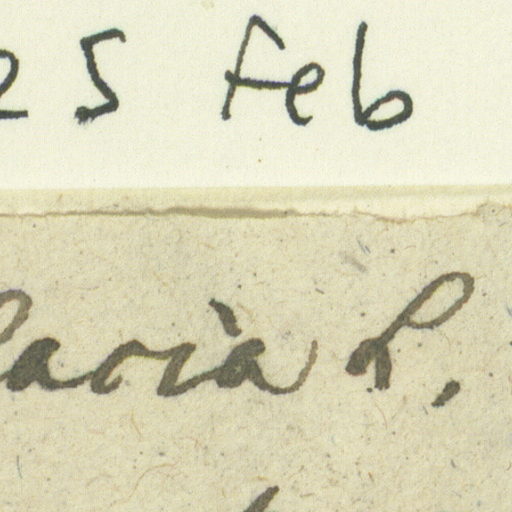 25 Feb
laria L.